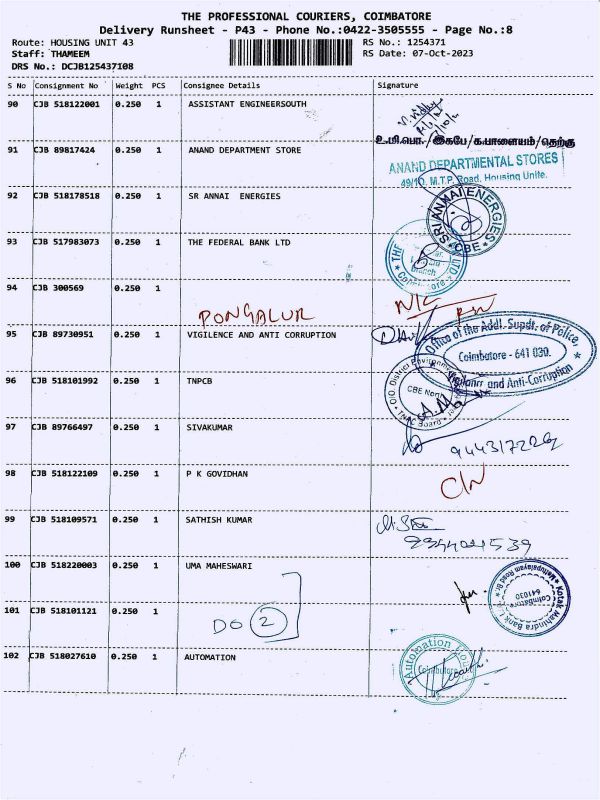 THE PROFESSIONAL COURIERS, COIMBATORE
Delivery Runsheet - P43 - Phone No.:0422-3505555 - Page No.:8
Route: HOUSING UNIT 43
RS No.: 1254371
Staff: THAMEEM
RS Date: 07-Oct-2023
DRS No.: DCJB125437108
S No Consignment No Weight PCS Consignee Details Signature
90 CJB 518122001 0.250 1 ASSISTANT ENGINEERSOUTH
உ.மி.பொ./இகபே/க.பாளையம்/தெற்கு
91 CJB 89817424 0.250 1 ANAND DEPARTMENT STORE
ANAND DEPARTMENTAL STORES
49/10, M.T.P. Road, Housing Unite.
92 CJB 518178518 0.250 1 SR ANNAI ENERGIES
SRI ANNAI ENERGIES
CBE
93 CJB 517983073 0.250 1 THE FEDERAL BANK LTD
THE LTD
Branch
94 CJB 300569 0.250 1
PONGALUR N/C
95 CJB 89730951 0.250 1 VIGILENCE AND ANTI CORRUPTION
Office of the Addl. Supdt. of Police,
Coimbatore - 641 030.
Vigilance and Anti-Corruption
96 CJB 518101992 0.250 1 TNPCB
O/O. District Environmental
CBE North
TNPC Board
97 CJB 89766497 0.250 1 SIVAKUMAR
98 CJB 518122109 0.250 1 P K GOVIDHAN
C/N
99 CJB 518109571 0.250 1 SATHISH KUMAR
100 CJB 518220003 0.250 1 UMA MAHESWARI
Kotak Mahindra Bank Ltd
Mettupalayam Road Br.
Coimbatore
641030
101 CJB 518101121 0.250 1
DO 2
102 CJB 518027610 0.250 1 AUTOMATION
Automation
Coimbatore